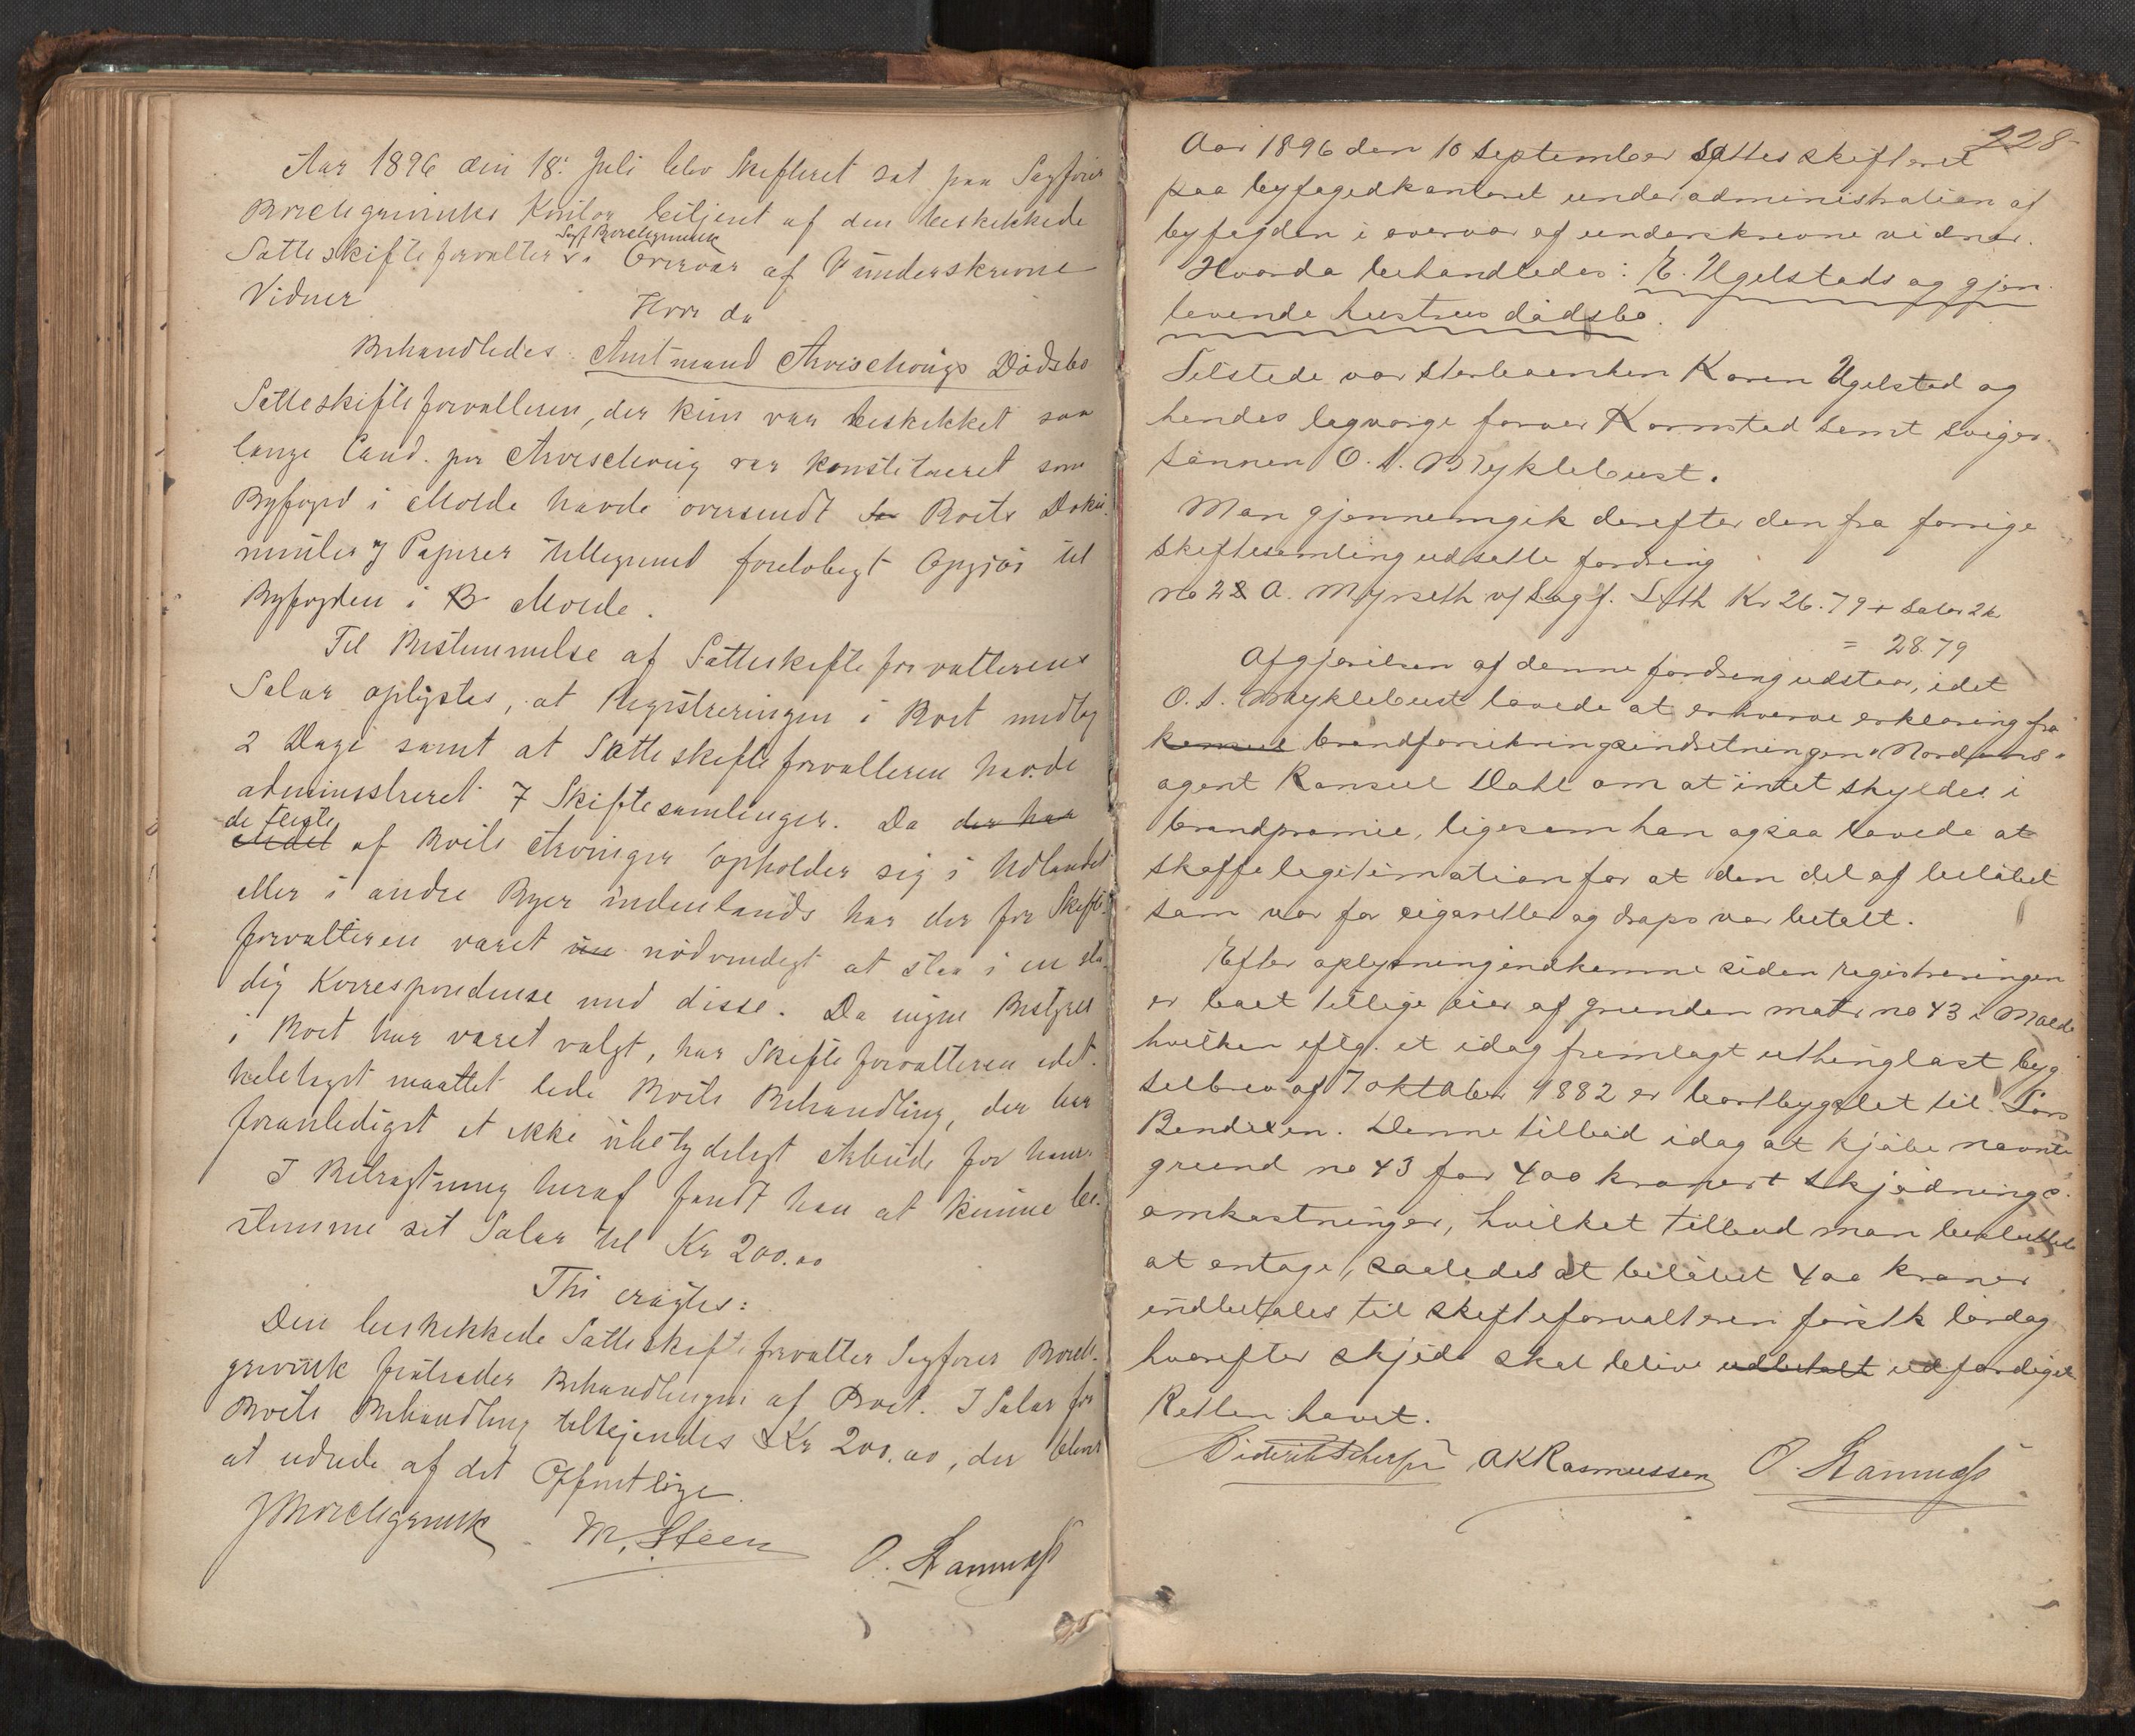 Aar 1896 den 18: Juli blev Skifteret sat paa Sagfører
Borchgrevinks Kontor betjent af den beskikkede
Sagf. Borchgrevink
Sætteskifteforvalter i Overvær af Underskrevne
Vidner
Hvor da
Behandledes: Amtmand Arveschougs Dødsbo
Sætteskifteforvalteren, der kun var beskikket saa
længe Cand. jur Arveschoug var konstitueret som
Byfoged i Molde havde oversendt Boets Doku-
menter og Papirer tilligemed foreløbigt Opgjør til
Byfogden i B Molde.
Til Bestemmelse af Sætteskifteforvalterens
Salær oplystes, at Registreringen i Boet medtog
2 Dage samt at Sætteskifteforvalteren havde
administreret 7 Skiftesamlinger. Da der har
de fleste
af Boets Arvinger opholder sig i Udlandet
eller i andre Byer indenlands har det for Skifte-
forvalteren været nødvendigt at staa i en sta-
dig Korrespondense med disse. Da ingen Bestyrer
i Boet har været valgt, har Skifteforvalteren udel-
helttaget maattet lede Boets Behandling, der har
foranlediget et ikke ubetydeligt Arbeide for ham.
I Betragtning heraf fandt han at kunne be-
stemme sit Salær til Kr 200.00
Thi eragtes:
Den beskikkede Sætteskifteforvalter Sagfører Borch-
grevink fratræder Behandlingen af Boet. I Salær for
Boets Behandling tilkjendes Kr 200.00, der bliver
at udrede af det Offentlige.
J Borchgrevink M. Steen
O. Ramnefj
228
Aar 1896 den 10 September sattes skifteret
paa byfogedkontoret under administration af
byfogden i overvær af underskrevne vidner.
Hvorda behandledes: E. Ugelstads og gjen-
levende hustrus dødsbo.
Tilstede var sterboenken Karen Ugelstad og
hendes lagværge farver Kornstad samt sviger-
sønnen O. A. Myklebust.
Man gjennemgik derefter den fra forrige
skiftesamling udsatte fordring
no 22 A. Myrseth v/ Sagf. Leth Kr 26.79 + Salær 2 kr
= 28.79
Afgjørelsen af denne fordring udstaar, idet
O. A. Myklebust lovede at erhverve erklæring fra
konsul brandforsikringsindretningen "Nordens"
agent Konsul Dahl om at intet skyldes i
brandpræmie, ligesom han ogsaa lovede at
skaffe legitimation for at den del af beløbet
som var for cigaretter og drops var betalt.
Efter oplysning indkomne siden registreringen
er boet tillige eier af grunden matr no 43 i Molde
hvilken eflg. et idag fremlagt uthinglæst byg-
selbrev af 7 oktober 1882 er bortbygslet til Lars
Bendixen. Denne tilbød idag at kjøbe nævnte
grund no 43 for 400 kroner + skjødnings-
omkostninger, hvilket tilbud man besluttede
at antage, saaledes at beløbet 400 kroner
indbetales til skifteforvalteren førstk lørdag
hvorefter skjøde skal blive udbetalt udfærdiget
Retten hævet.
AKRasmussen O. Ramnefj